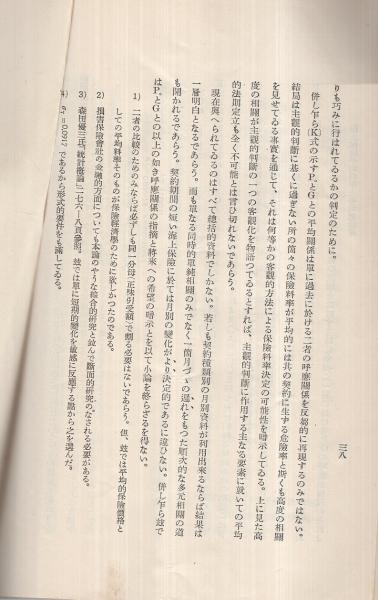 三八
りも巧みに行はれてゐるかの判定のために。
併し乍ら(K)式の示すPとGとの平均關係は單に過去に於ける二者の呼應關係を反芻的に再現するのみではない。
結局は主觀的判斷に基くに過ぎない所の箇々の保險料率が平均的には其の契約に生ずる危險率と斯くも高度の相關
を見せてゐる事實を通じて、それは何等かの客觀的方法による保險料率決定の可能性を暗示してゐる。上に見た高
度の相關が主觀的判斷の一つの客觀化を物語つてゐるとすれば、主觀的判斷に作用する主なる要素に就いての平均
的法則定立も全く不可能とは言ひ切れないであらう。
現在與へられてゐるのはすべて總括的資料でしかない。若しも契約種類別の月別資料が利用出來るならば結果は
一層明白となるであらう。而も單なる同時的單純相關のみでなく一箇月づゝの遲れをもつた順次的な多元相關の道
も開かれるであらう。契約期間の短い海上保險に於ては月別の變化がより決定的であるに違ひない。併し乍ら玆で
はPとGとの以上の如き呼應關係の指摘と將來への希望の暗示とを以て小論を終らざるを得ない。
1) 二者の比較のためのみならば必ずしも同一分母(正味引受額)で割る必要はないであらう。但、玆では平均的保險價格と
しての平均料率そのものが保險經濟學のために欲しかつたのである。
2) 損害保險會社の金融的方面についても本論のやうな綜合的研究と竝んで斷面的研究のなされる必要がある。
3) 森田優三氏「統計概論」二七六—八頁參照。玆では單に短期的變化を敏感に反應する點から之を選んだ。
4) σ_T = 0.0917 であるから形式的要件をも滿してゐる。